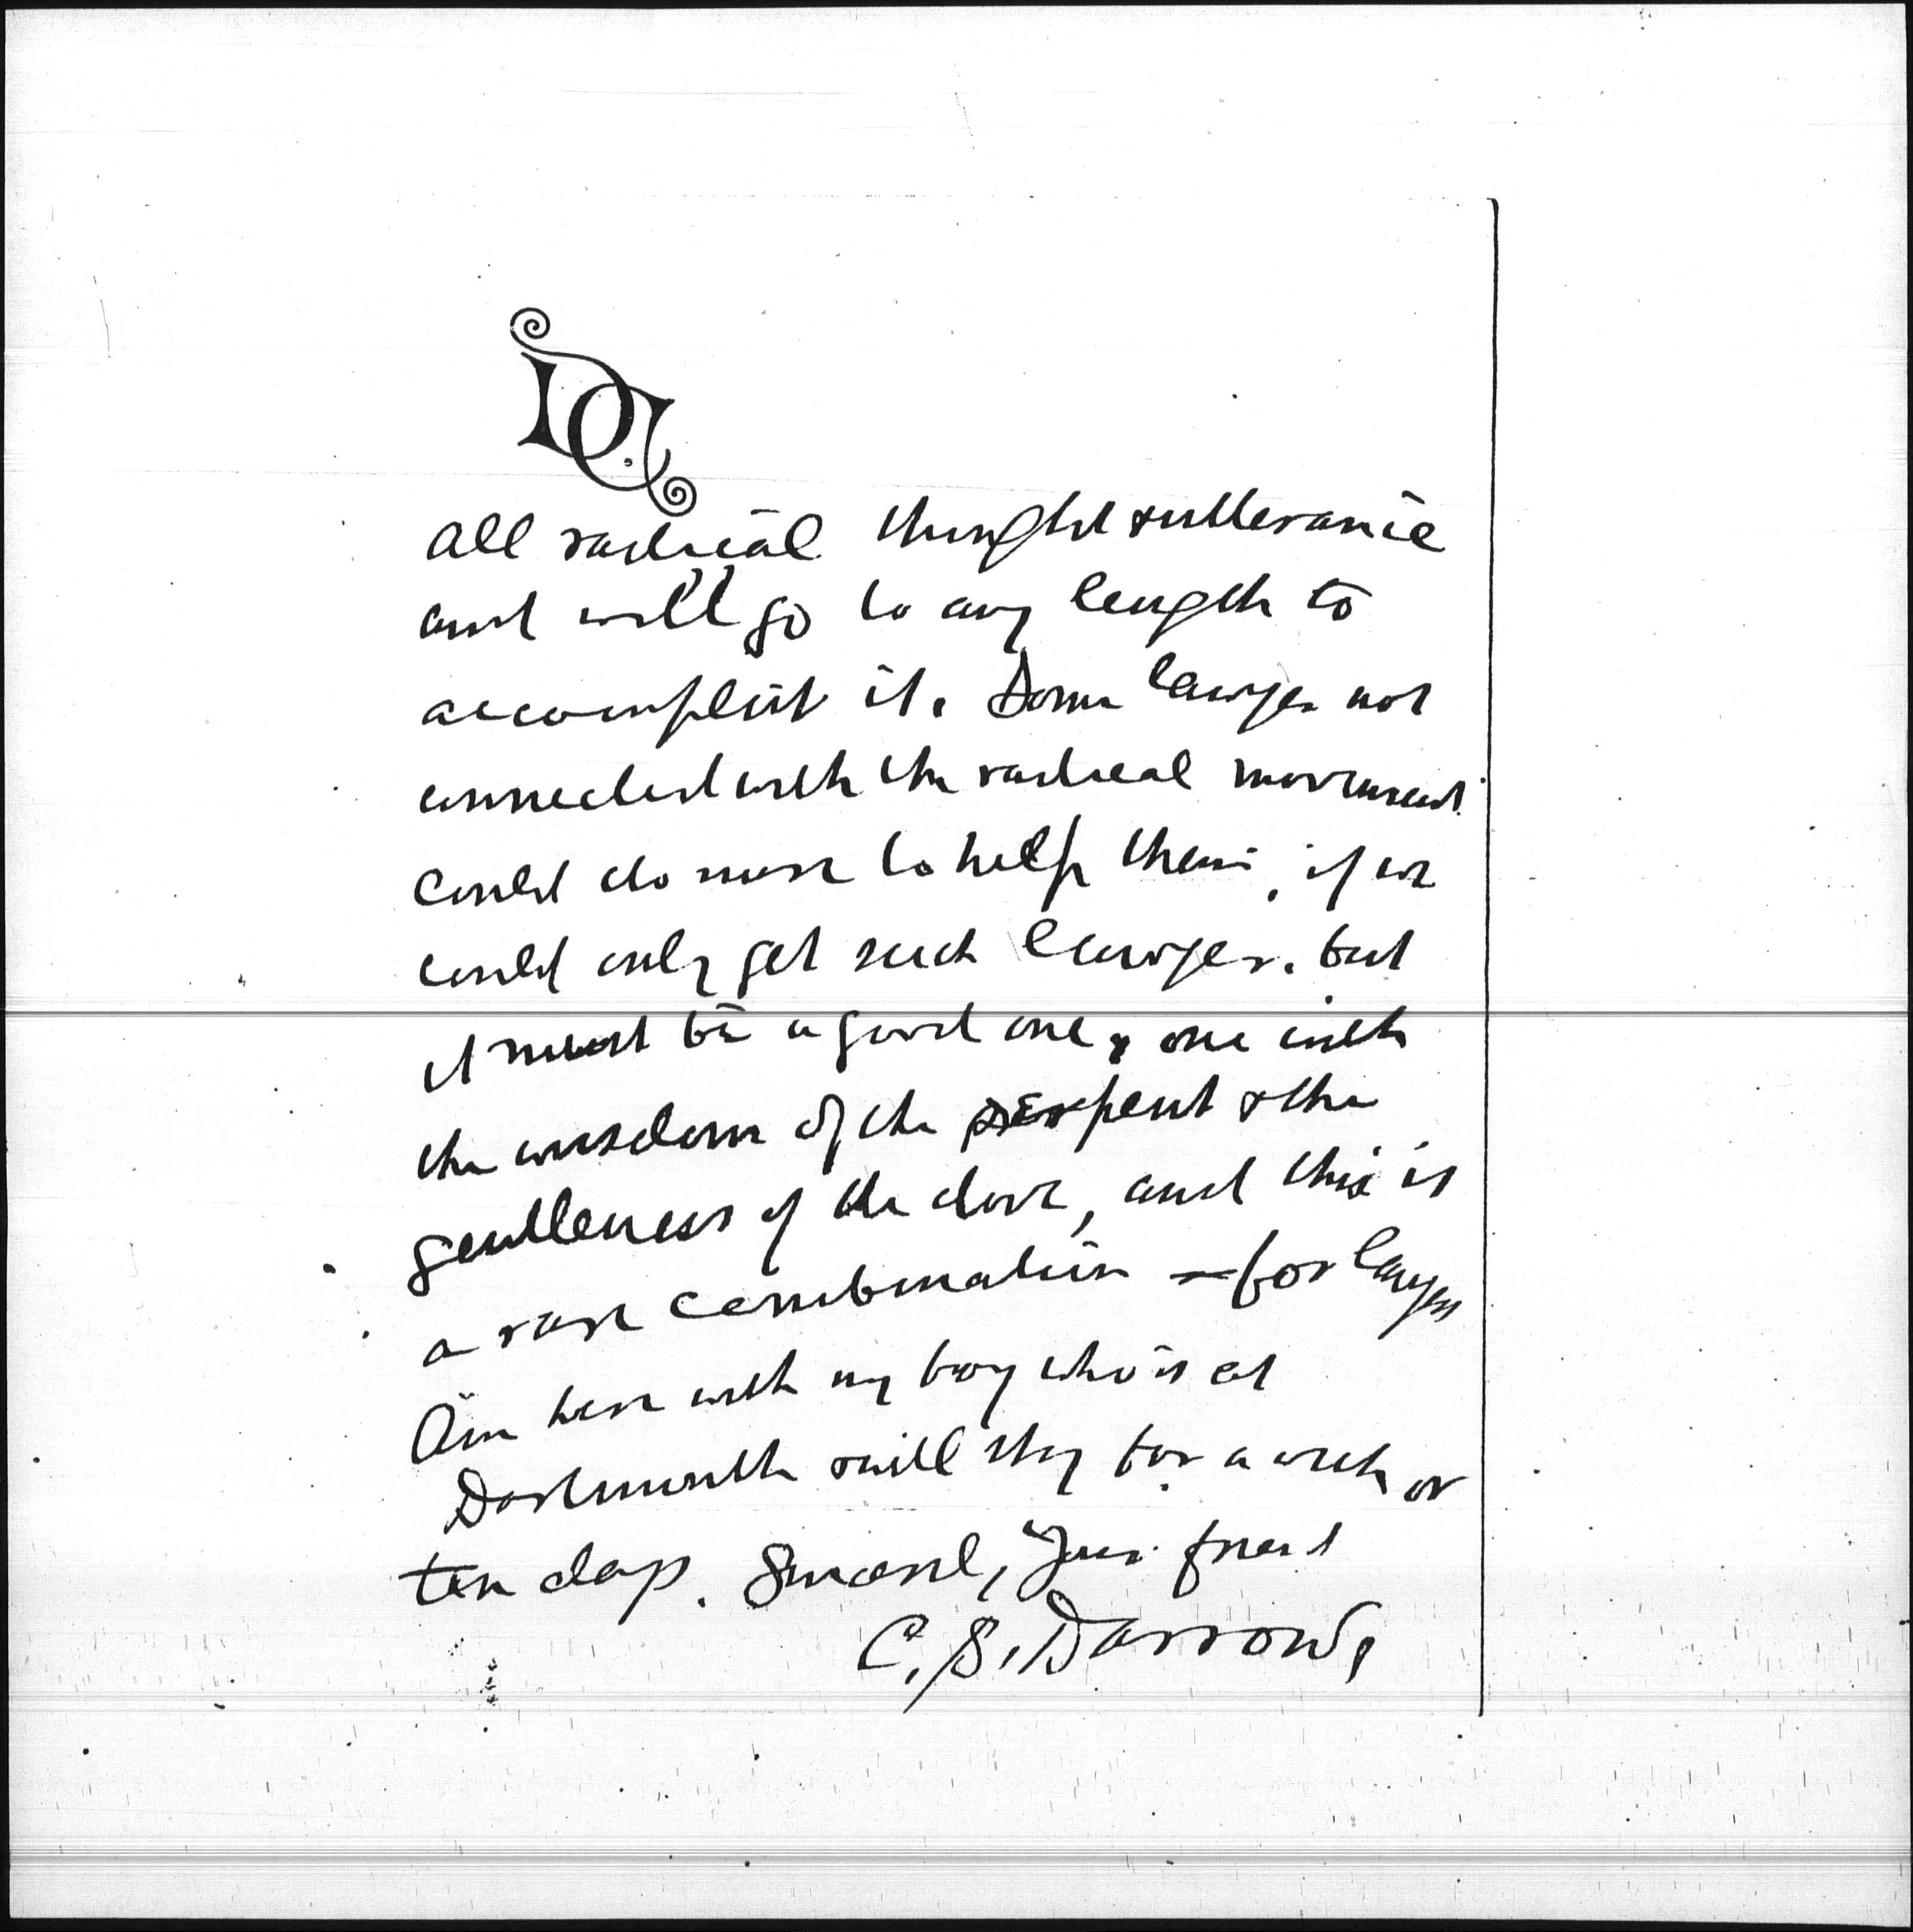 DC
all radical thought & utterance
and will go to any length to
accomplish it. Some lawyer not
connected with the radical movement
could do more to help them, if we
could only get such lawyer. but
it must be a good one, one with
the wisdom of the serpent & the
gentleness of the dove, and this is
a rare combination – for lawyers
Am here with my boy who is at
Dartmouth & will stay for a week or
ten days. Sincerely, Your friend
C. S. Darrow,